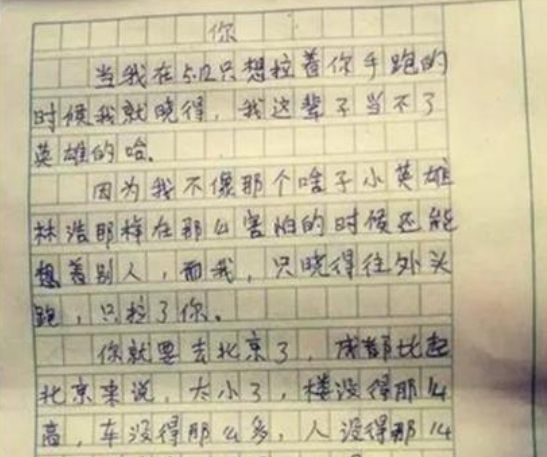 你
当我在5.12只想拉着你手跑的
时候我就晓得，我这辈子当不了
英雄的哈。
因为我不像那个啥子小英雄
林浩那样在那么害怕的时候还能
想着别人，而我，只晓得往外头
跑，只拉了你。
你就要去北京了，成都比起
北京来说，太小了，楼没得那么
高，车没得那么多，人没得那么